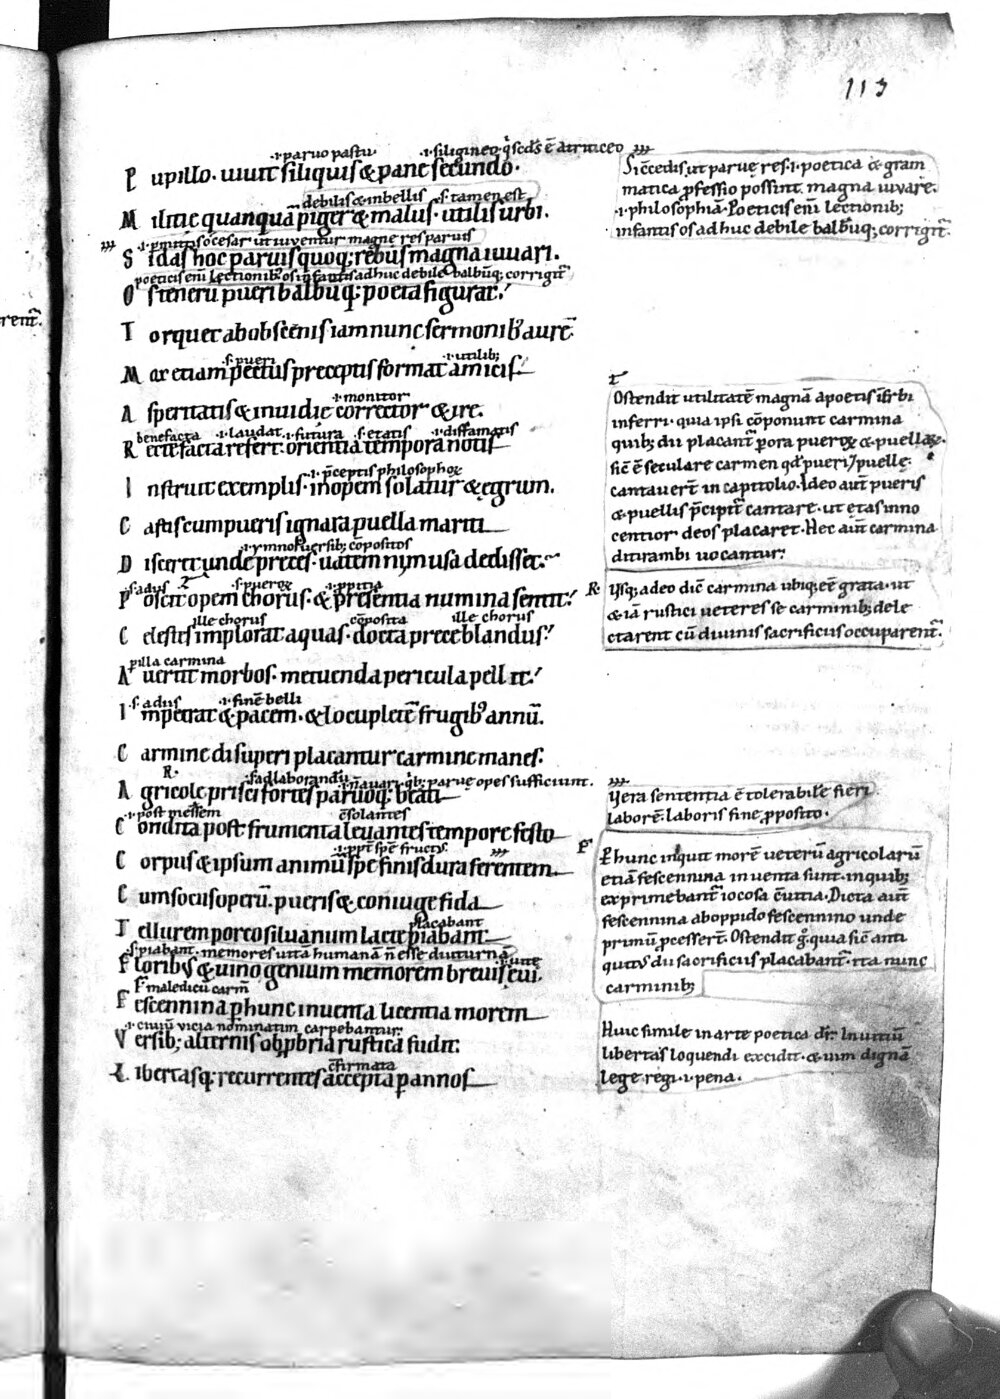 113
.i. paruo pastu .i. siligineo q̇ scds ē atriticeo
Pupillo. uiuit siliquis & pane secundo.
debilis & inbellis .s. tamen est
Militiç quanquā piger & malus. utilis urbi.
Si das hoc paruis quoq; rebus magna iuuari.
poeticis eni lectionib; os infantis adhuc debile balbūq; corrigit
Os tenerū pueri balbūq; poeta figurat.
Torquet ab obscenis iam nunc sermonib; aurē
.s. pueri .i. utilib;
Mox etiam pectus preceptis format amicis.
.i. monitor
Asperitatis & inuidię corrector & irę.
benefacta .i. laudat .i. futura .s. ętatis .i. diffamatis
Recte facta refert. orientia tempora notis
.i. pceptis philosophoꝝ
Instruit exemplis. inopem solatur & ęgrum.
Castis cum pueris ignara puella mariti
.i. ymnos uersib; cōpositos
Disceret unde preces. uatem ni musa dedisset.
.s. adus .s. pueroꝝ .i. ppitia
Poscit opem chorus. & presentia numina sentit.
ille chorus cōposita ille chorus
Celestes implorat aquas. docta prece blandus.
p illa carmina
Auertit morbos. metuenda pericula pellit.
.s. adus .i. finē belli
Impetrat & pacem. & locupletē frugib; annū.
Carmine di superi placantur carmine manes.
R.
.s. ad laborandū .i. n̄ auari. qb; paruę opes sufficiunt.
Agricolę prisci fortes paruoq; beati
.i. post messem cōsolantes
Condita post frumenta leuantes tempore festo
.i. ppt spē fructus
Corpus & ipsum animū spe finis dura ferentem.
Cum sociis operū. pueris & coniuge fida
placabant
Tellurem porco siluanum lacte piabant.
.s. piabant. memores uitā humanā n̄ esse diuturnā
Florib; & uino genium memorem breuis ęui.
maledicū carm̄
Fescennina p hunc inuenta licentia morem
.i. ciuiū uicia nominatim carpebantur
Versib; alternis obpbria rustica fudit.
cōfirmata
Libertasq; recurrentes accepta p annos
Si ccedis ut paruę res .i. poetica & gram
matica pfessio possint magna iuuare.
.i. philosophiā. Poeticis eni lectionib;
infantis os adhuc debile balbūq; corrigit.
Ostendit utilitatē magnā a poetis
inferri. quia ipsi cōponunt carmina
quib; dii placant p ora pueroꝝ & puellaꝝ.
sic ē seculare carmen qd pueri & puellę
cantauert in capitolio. Ideo aut pueris
& puellis pcipit cantare. ut ętas inno
centior deos placaret. Hec aut carmina
ditirambi uocantur.
R Vsq; adeo dic carmina ubiq; eē grata. ut
& iā rustici ueteres se carminib; dele
ctarent cū diuinis sacrificiis occuparent.
Vera sententia ē tolerabile fieri
laborē. laboris fine pposito.
P hunc inquit morē ueterū agricolarū
etiā fescennina inuenta sunt. in quib;
exprimebant iocosa cuitia. Dicta aut
fescennina ab oppido fescennino unde
primū pcessert. Ostendit g quia sic anti
quitus dii sacrificiis placabant. ita nunc
carminib;
Huic simile in arte poetica dr. In uitiū
libertas loquendi excidit. & uim dignā
lege regi .i. pena.